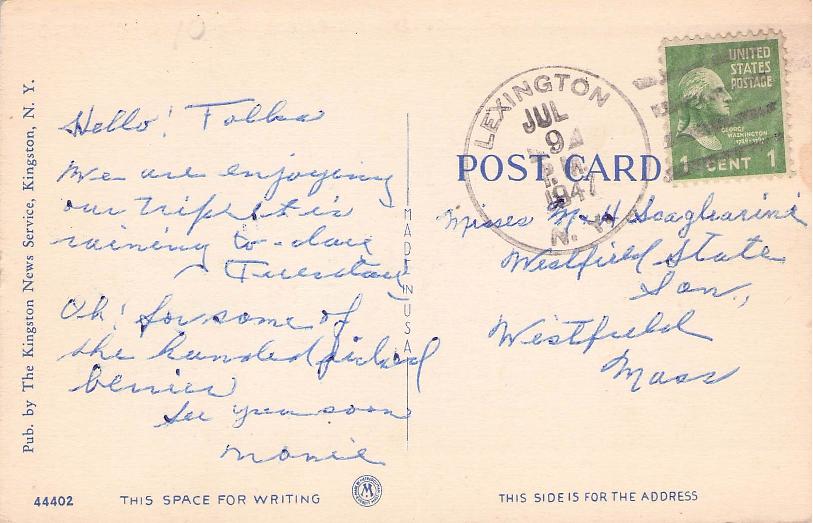 Pub. by The Kingston News Service, Kingston, N. Y.
Hello! Folks
We are enjoying
our trip. It is
raining to-day
Tuesday
Oh! for some of
the handed picked
berries
See you soon
MADE IN USA
44402
THIS SPACE FOR WRITING
LEXINGTON
JUL
9
1947
N. Y.
UNITED
STATES
POSTAGE
GEORGE
WASHINGTON
1 CENT 1
POST CARD
Misses M & H Scagliarini
Westfield State
San.,
Westfield
Mass
THIS SIDE IS FOR THE ADDRESS